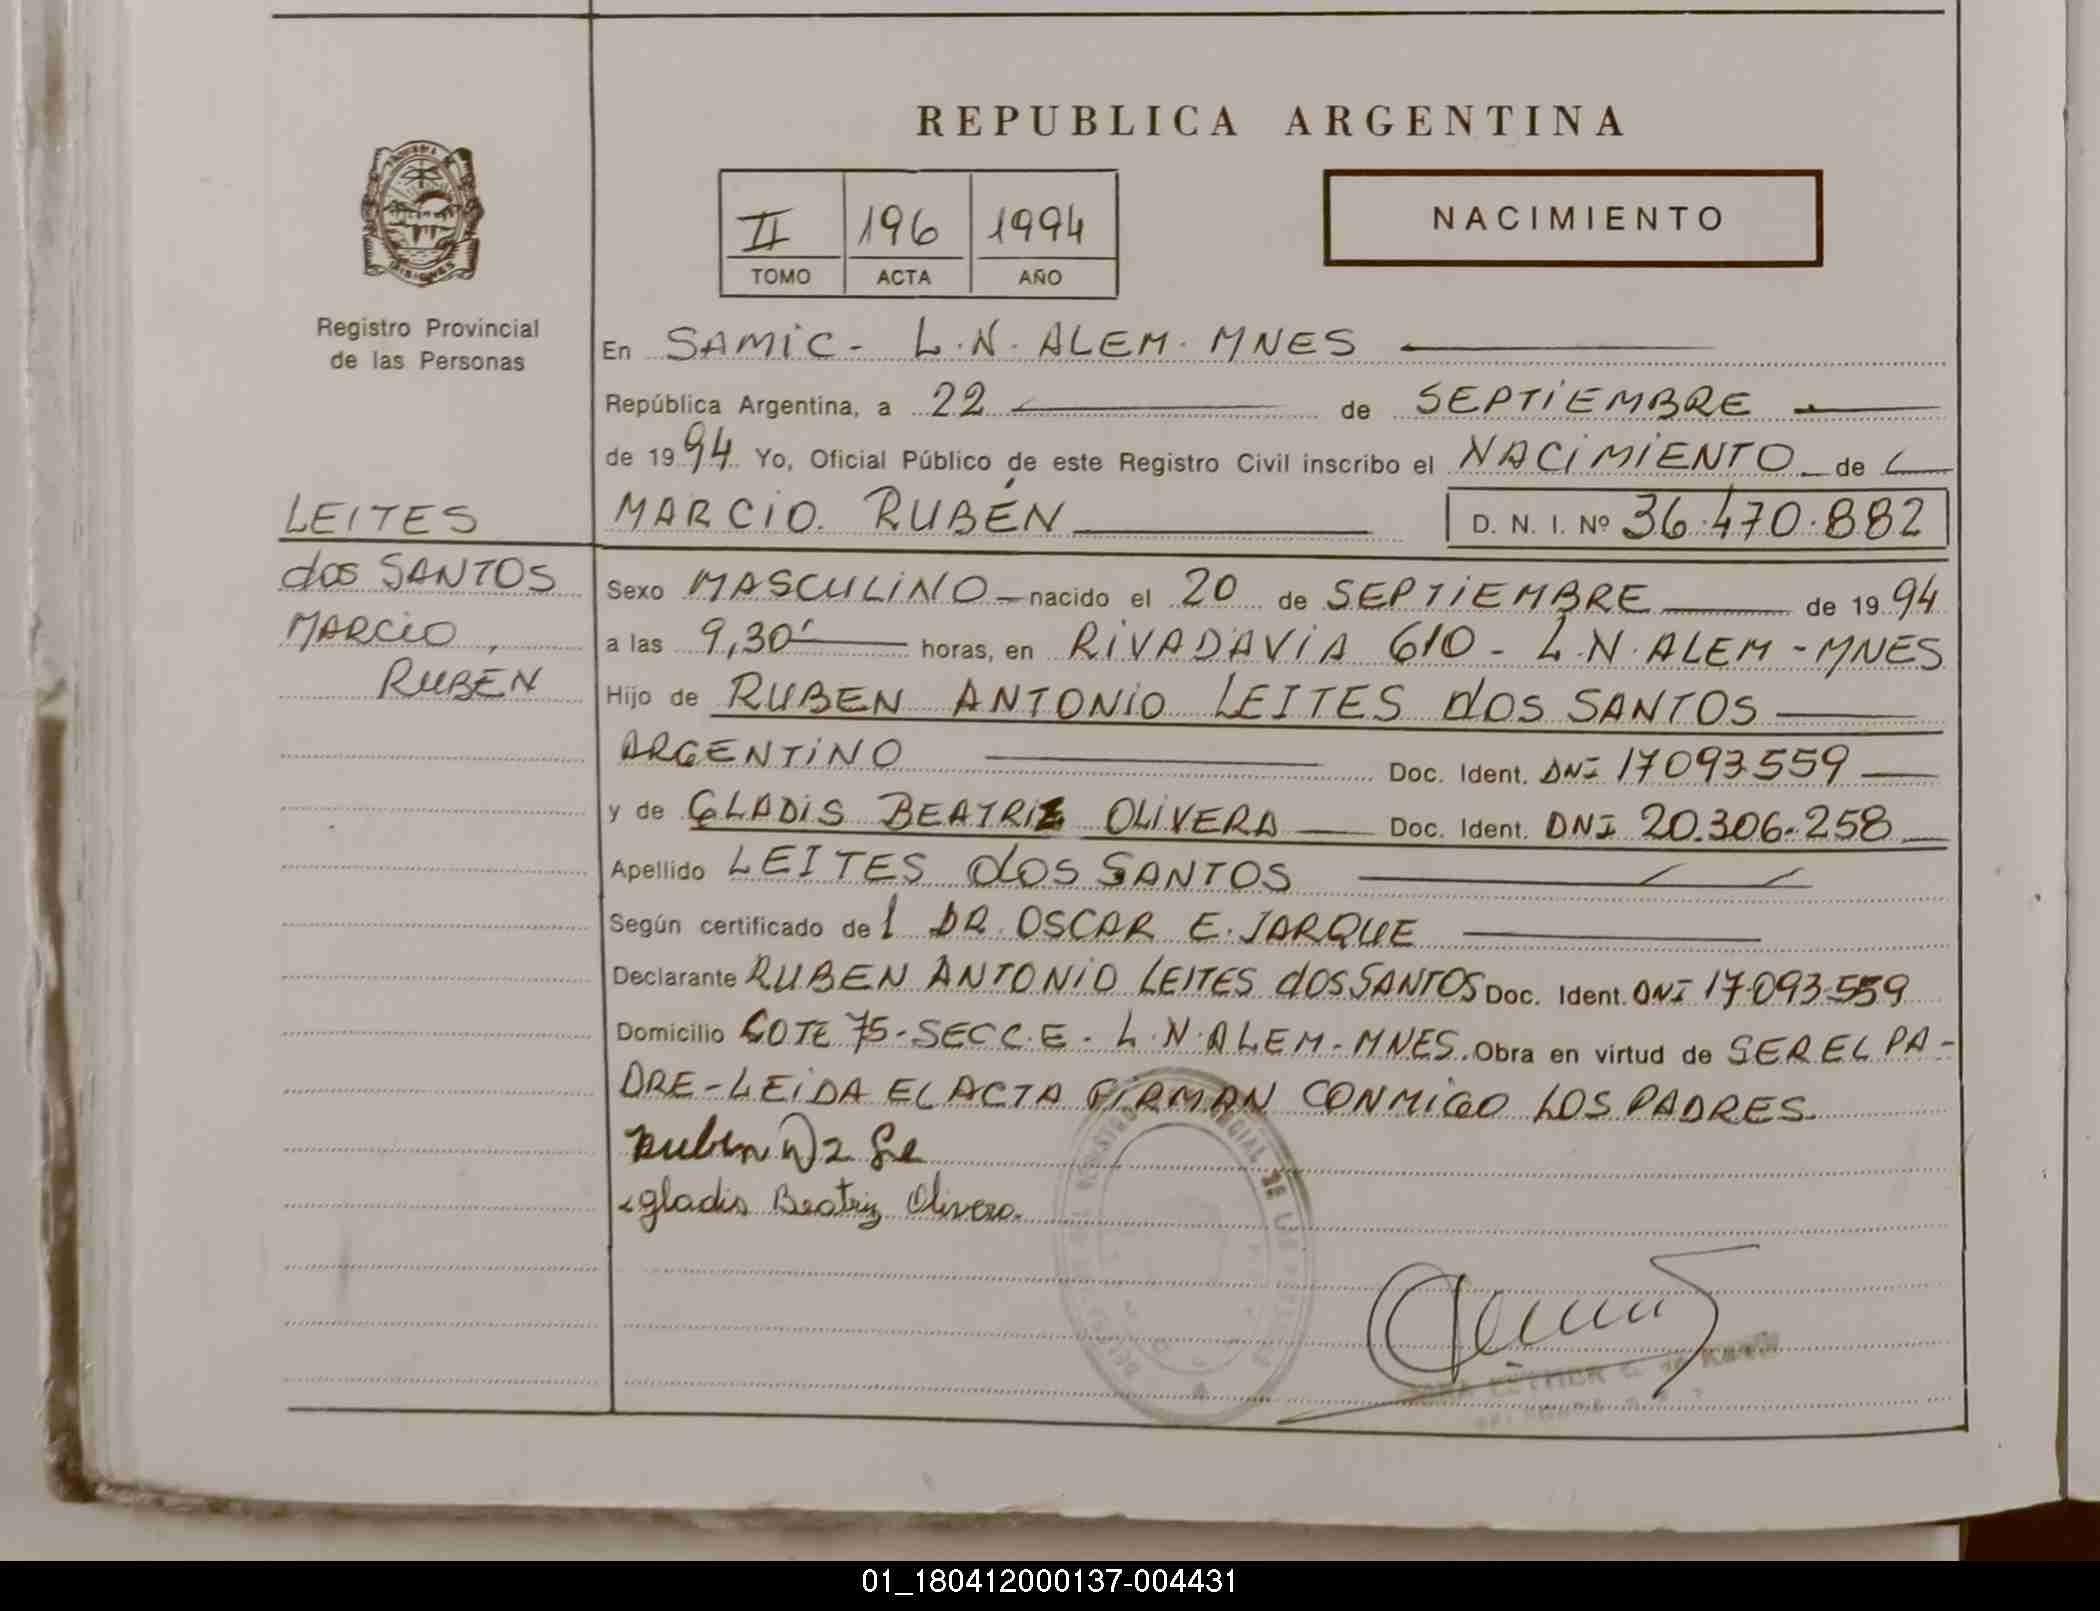 REPUBLICA ARGENTINA
II 196 1994
TOMO ACTA AÑO
NACIMIENTO
Registro Provincial
de las Personas
En SAMIC - L.N. ALEM. MNES
República Argentina, a 22 de SEPTIEMBRE
de 1994 Yo, Oficial Público de este Registro Civil inscribo el NACIMIENTO de
MARCIO. RUBÉN D. N. I. Nº 36.470.882
LEITES
dos SANTOS
MARCIO,
RUBEN
Sexo MASCULINO nacido el 20 de SEPTIEMBRE de 1994
a las 9,30' horas, en RIVADAVIA 610 - L.N. ALEM - MNES
Hijo de RUBEN ANTONIO LEITES dos SANTOS
ARGENTINO Doc. Ident. DNI 17093559
y de GLADIS BEATRIZ OLIVERA Doc. Ident. DNI 20.306.258
Apellido LEITES dos SANTOS
Según certificado del DR. OSCAR E. JARQUE
Declarante RUBEN ANTONIO LEITES dos SANTOS Doc. Ident. DNI 17.093.559
Domicilio LOTE 75 - SECC. E - L.N. ALEM - MNES. Obra en virtud de SER EL PA-
DRE - LEIDA EL ACTA FIRMAN CONMIGO LOS PADRES.
Ruben
gladis Beatriz Olivera.
ESTHER
01_180412000137-004431